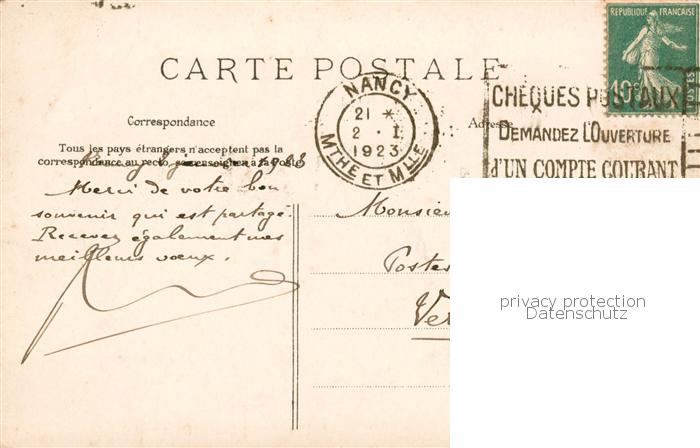 REPUBLIQUE FRANÇAISE
10c
POSTES
CARTE POSTALE
NANCY
21 *
2 - I
1923
MTHE ET MLLE
CHÈQUES POSTAUX
DEMANDEZ L'OUVERTURE
d'UN COMPTE COURANT
Correspondance
Adresse
Tous les pays étrangers n'acceptent pas la
correspondance au recto, se renseigner à la Poste
Nancy 1923
Merci de votre bon
souvenir qui est partagé.
Recevez également mes
meilleurs vœux.
Monsieu
Postes
Ver
privacy protection
Datenschutz